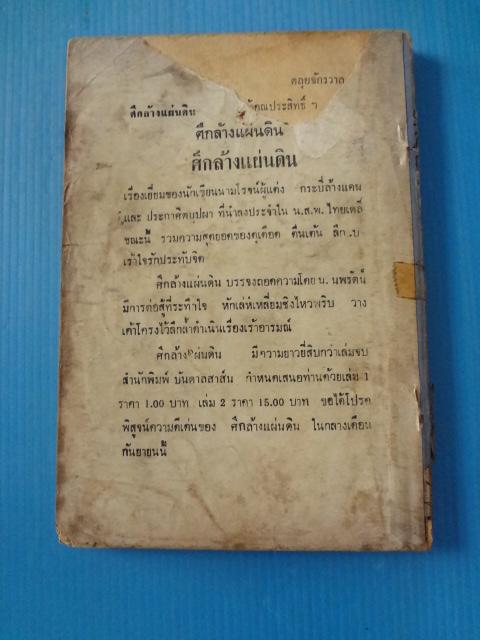 ตลุยจักรวาล
ศึกล้างแผ่นดิน
ศึกล้างแผ่นดิน
ศึกล้างแผ่นดิน
เรื่องเยี่ยมของนักเขียนนามโรจน์ผู้แต่ง กระบี่ล้างแค้น
และ ประกาศิตบุปผา ที่นำลงประจำใน น.ส.พ. ไทยเดลี่
ขณะนี้ รวมความสุดยอดของดุเดือด ตื่นเต้น
เร้าใจรักประทับจิต
ศึกล้างแผ่นดิน บรรจงถอดความโดย น. นพรัตน์
มีการต่อสู้ที่ระทึกใจ หักเล่ห์เหลี่ยมชิงไหวพริบ วาง
เค้าโครงไว้ลึกล้ำดำเนินเรื่องเร้าอารมณ์
ศึกล้างแผ่นดิน มีความยาวยี่สิบกว่าเล่มจบ
สำนักพิมพ์ บันดาลสาส์น กำหนดเสนอท่านด้วยเล่ม 1
ราคา 1.00 บาท เล่ม 2 ราคา 15.00 บาท ขอได้โปรด
พิสูจน์ความดีเด่นของ ศึกล้างแผ่นดิน ในกลางเดือน
กันยายนนี้